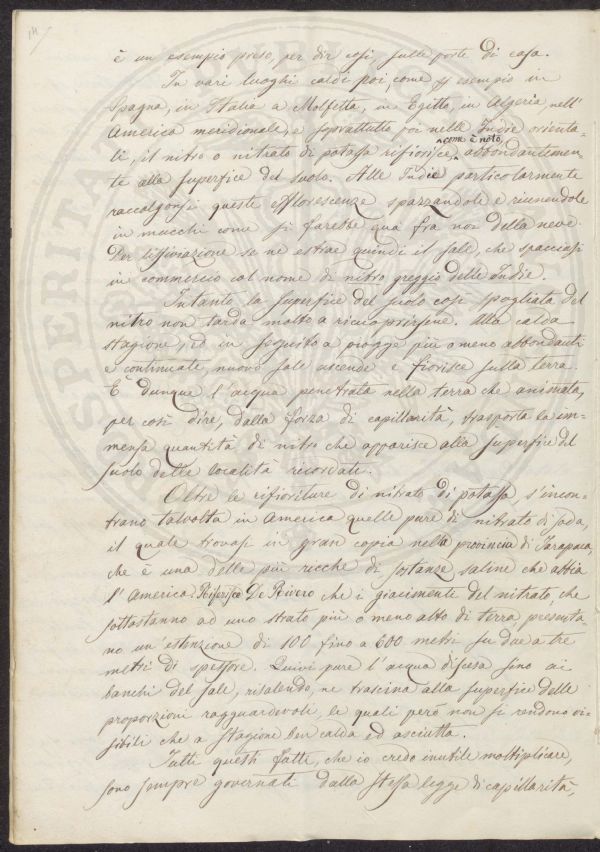 14/
è un esempio preso, per dir così, sulle porte di casa.
In vari luoghi caldi poi, come p. esempio in
Spagna, in Italia a Molfetta, in Egitto, in Algeria, nell'
America meridionale, e soprattutto poi nelle Indie orienta-
li, il nitro o nitrato di potassa rifiorisce, come è noto, abbondantemen-
te alla superfice del suolo. Alle Indie particolarmente
raccolgonsi queste efflorescenze spazzandole e riunendole
in mucchi come si farebbe qua fra noi della neve.
Per lissiviazione se ne estrae quindi il sale, che spacciasi
in commercio col nome di nitro greggio delle Indie.
Intanto la superfice del suolo così spogliata del
nitro non tarda molto a ricuoprirsene. Alla calda
stagione, ed in seguito a piogge più o meno abbondanti
e continuate, nuovo sale ascende e fiorisce sulla terra.
È dunque l'acqua penetrata nella terra che animata,
per così dire, dalla forza di capillarità, trasporta la im-
mensa quantità di nitro che apparisce alla superfice del
suolo delle località ricordate.
Oltre le rifioriture di nitrato di potassa, s'incon-
trano talvolta in America quelle pure di nitrato di soda,
il quale trovasi in gran copia nella provincia di Tarapaca,
che è una delle più ricche di sostanze saline che abbia
l'America. Riferisce De Rivero che i giacimenti del nitrato, che
sottostanno ad uno strato più o meno alto di terra, presenta
no un'estenzione di 100 fino a 600 metri su due a tre
metri di spessore. Quivi pure l'acqua discesa sino ai
banchi del sale, risalendo, ne trascina alla superfice delle
proporzioni ragguardevoli, le quali però non si rendono vi-
sibili che a stagione ben calda ed asciutta.
Tutti questi fatti, che io credo inutile moltiplicare,
sono sempre governati dalla stessa legge di capillarità,